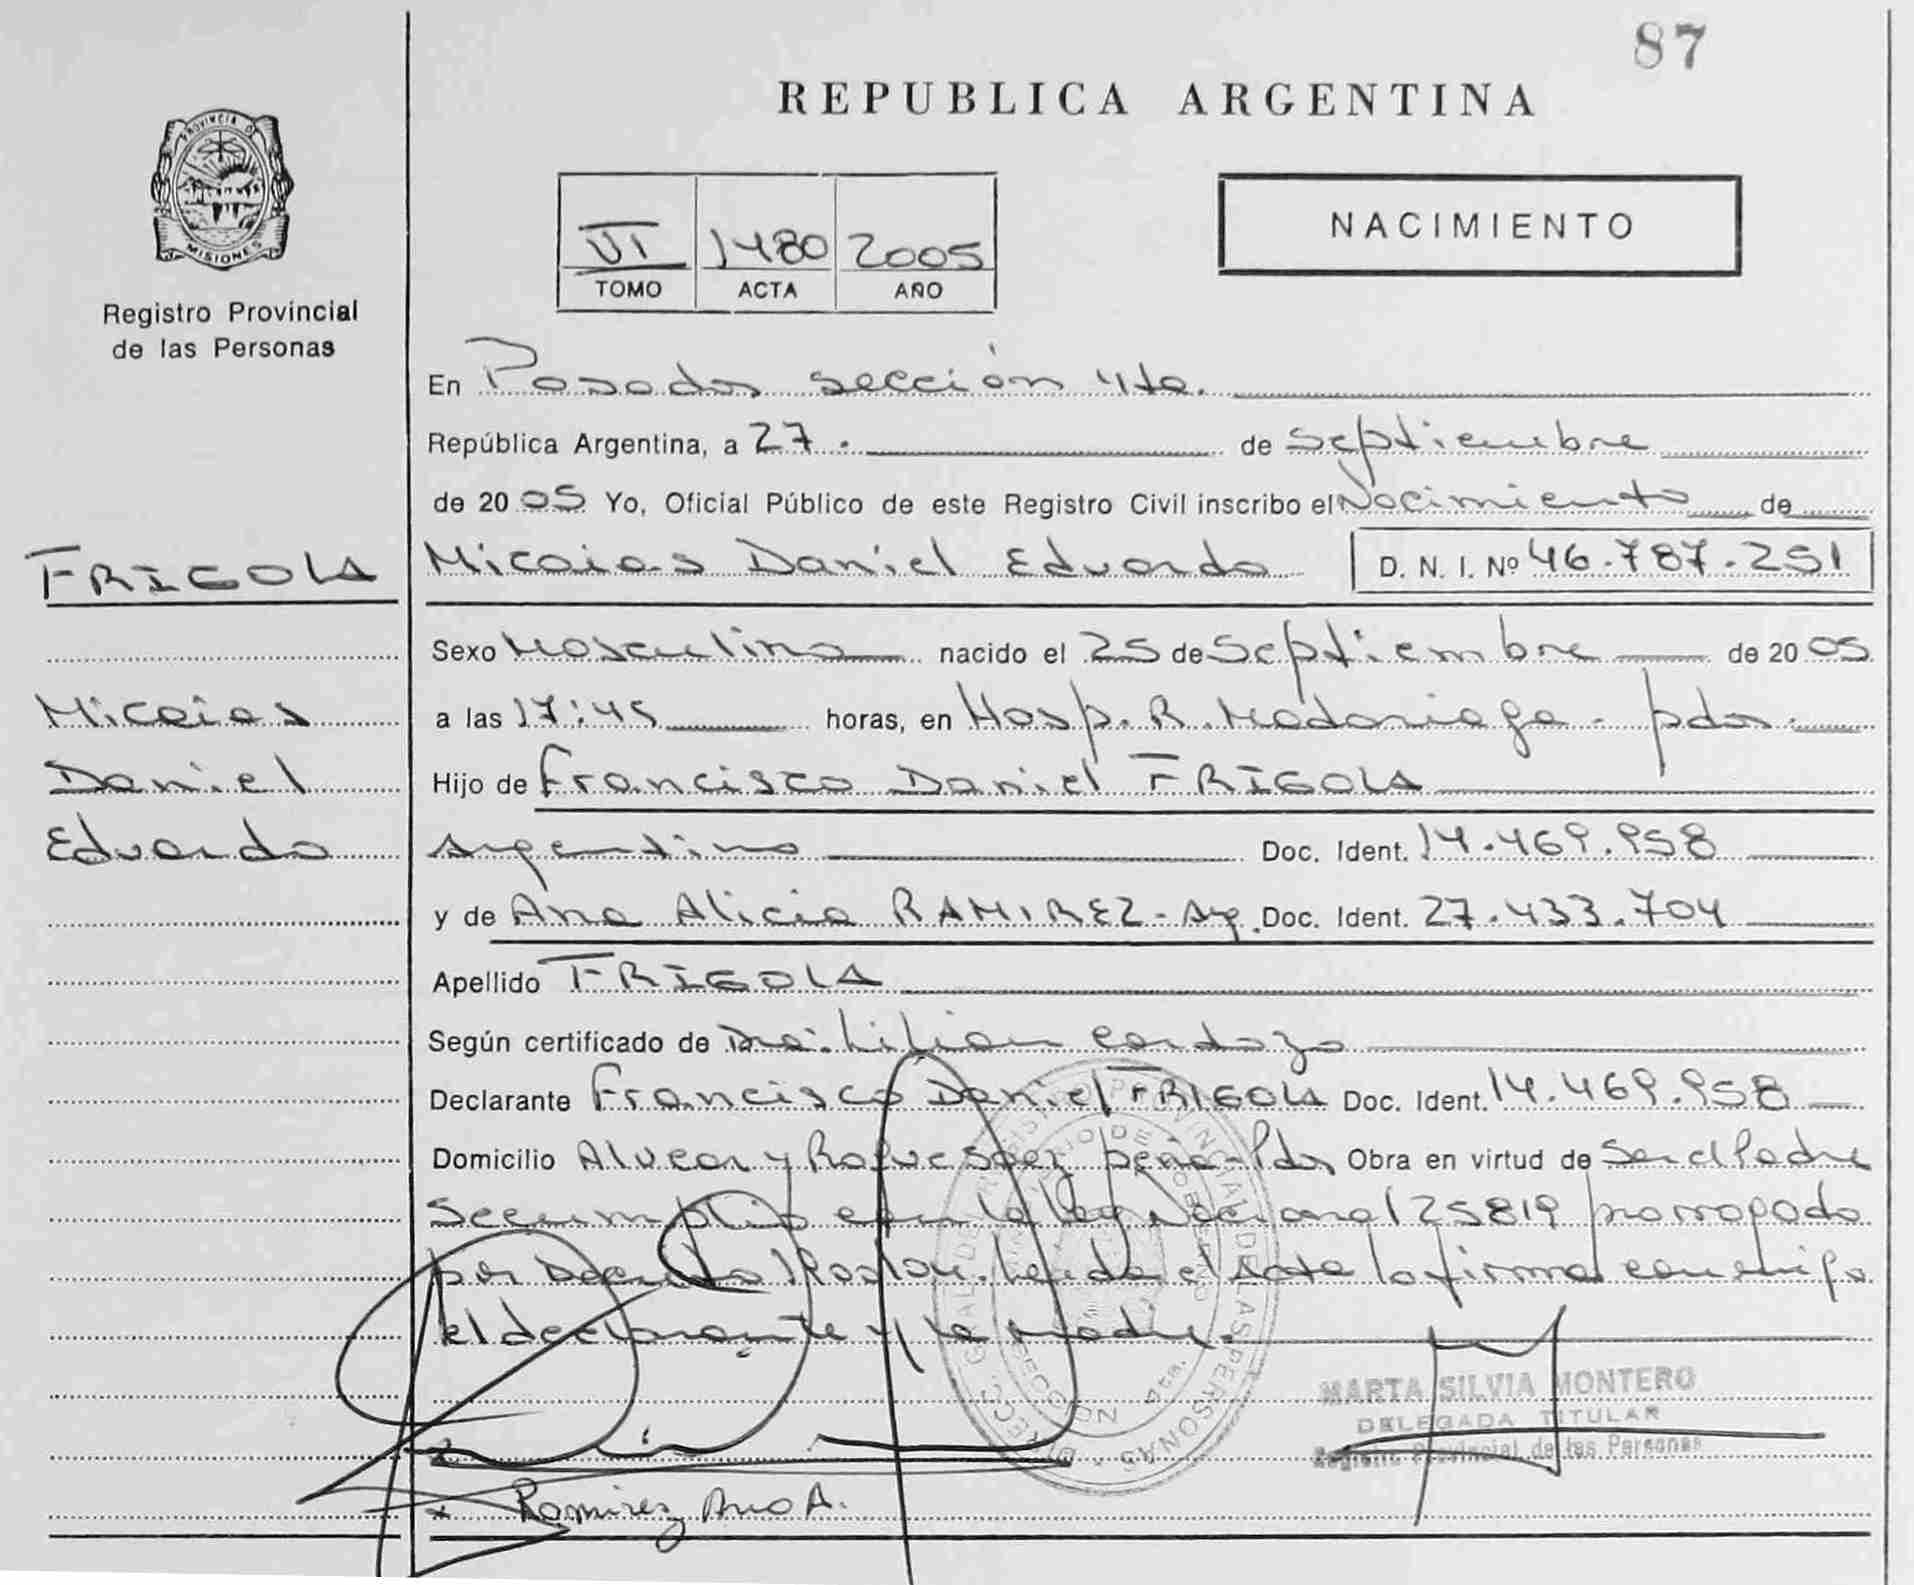 87
REPUBLICA ARGENTINA
PROVINCIA DE
MISIONES
Registro Provincial
de las Personas
NACIMIENTO
VI 1480 2005
TOMO ACTA AÑO
En Posadas sección 4ta.
República Argentina, a 27. de Septiembre
de 2005 Yo, Oficial Público de este Registro Civil inscribo el Nacimiento de
FRIGOLA
Micaias Daniel Eduardo D.N.I. Nº 46.787.251
Sexo Masculino nacido el 25 de Septiembre de 2005
Micaias
a las 17:45 horas, en Hosp. R. Madariaga - pdas.
Daniel
Hijo de Francisco Daniel FRIGOLA
Eduardo
Argentino Doc. Ident. 14.469.958
y de Ana Alicia RAMIREZ - Arg. Doc. Ident. 27.433.704
Apellido FRIGOLA
Según certificado de Dra. Lilian Cardozo
Declarante Francisco Daniel FRIGOLA Doc. Ident. 14.469.958
Domicilio Alvear y Roque Saez peña - Pdas Obra en virtud de Ser el Padre
Se cumplio con la ley Nacional 25819 prorrogada
por Decreto Leida el Acta la firma conmigo
el declarante y la madre.
DIRECC. GRAL. DE REGISTRO PROVINCIAL DE LAS PERSONAS
SECCION 4ta.
MARTA SILVIA MONTERO
DELEGADA TITULAR
Registro Provincial de las Personas
x
x Ramirez Ana A.